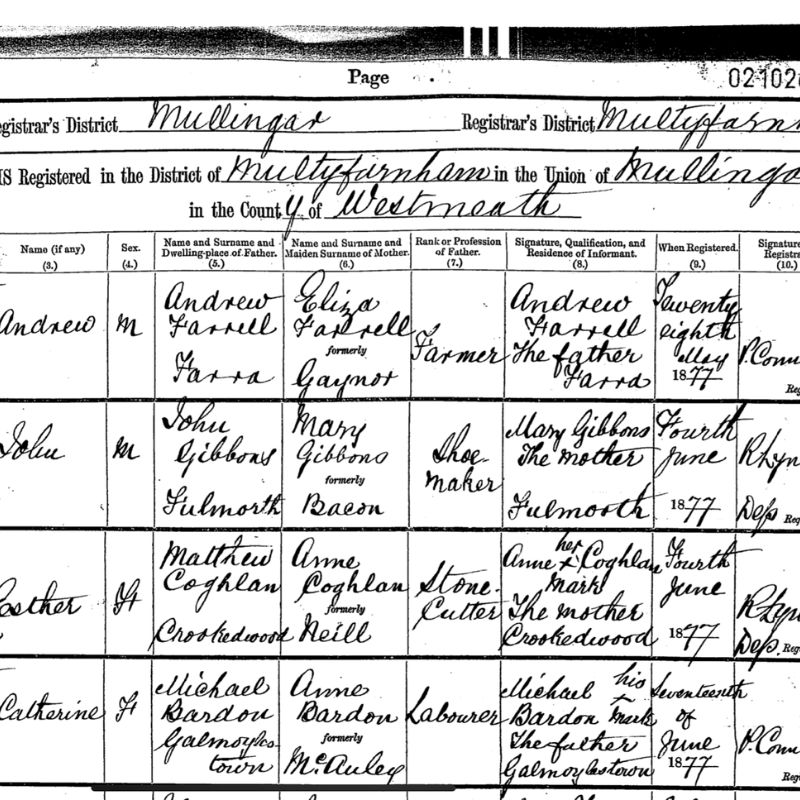 Page 02102
egistrar's District Mullingar Registrar's District Multyfarn
IS Registered in the District of Multyfarnham in the Union of Mullinga
in the County of Westmeath
Name (if any) Sex. Name and Surname and Dwelling-place of Father. Name and Surname and Maiden Surname of Mother. Rank or Profession of Father. Signature, Qualification, and Residence of Informant. When Registered. Signature Registra
(3.) (4.) (5.) (6.) (7.) (8.) (9.) (10.)
Andrew M Andrew Farrell Farra Eliza Farrell formerly Gaynor Farmer Andrew Farrell The father Farra Twenty eighth May 1877 P. Conn Reg
John M John Gibbons Fulmorth Mary Gibbons formerly Bacon Shoe maker Mary Gibbons The mother Fulmorth Fourth June 1877 R Lyn Dep Reg
Esther F Matthew Coghlan Crookedwood Anne Coghlan formerly Neill Stone Cutter Anne her x Coghlan Mark The mother Crookedwood Fourth June 1877 R Lyn Dep. Reg
Catherine F Michael Bardon Galmoylestown Anne Bardon formerly McAuley Labourer Michael his x Bardon Mark The father Galmoylestown Seventeenth of June 1877 P. Conn Reg